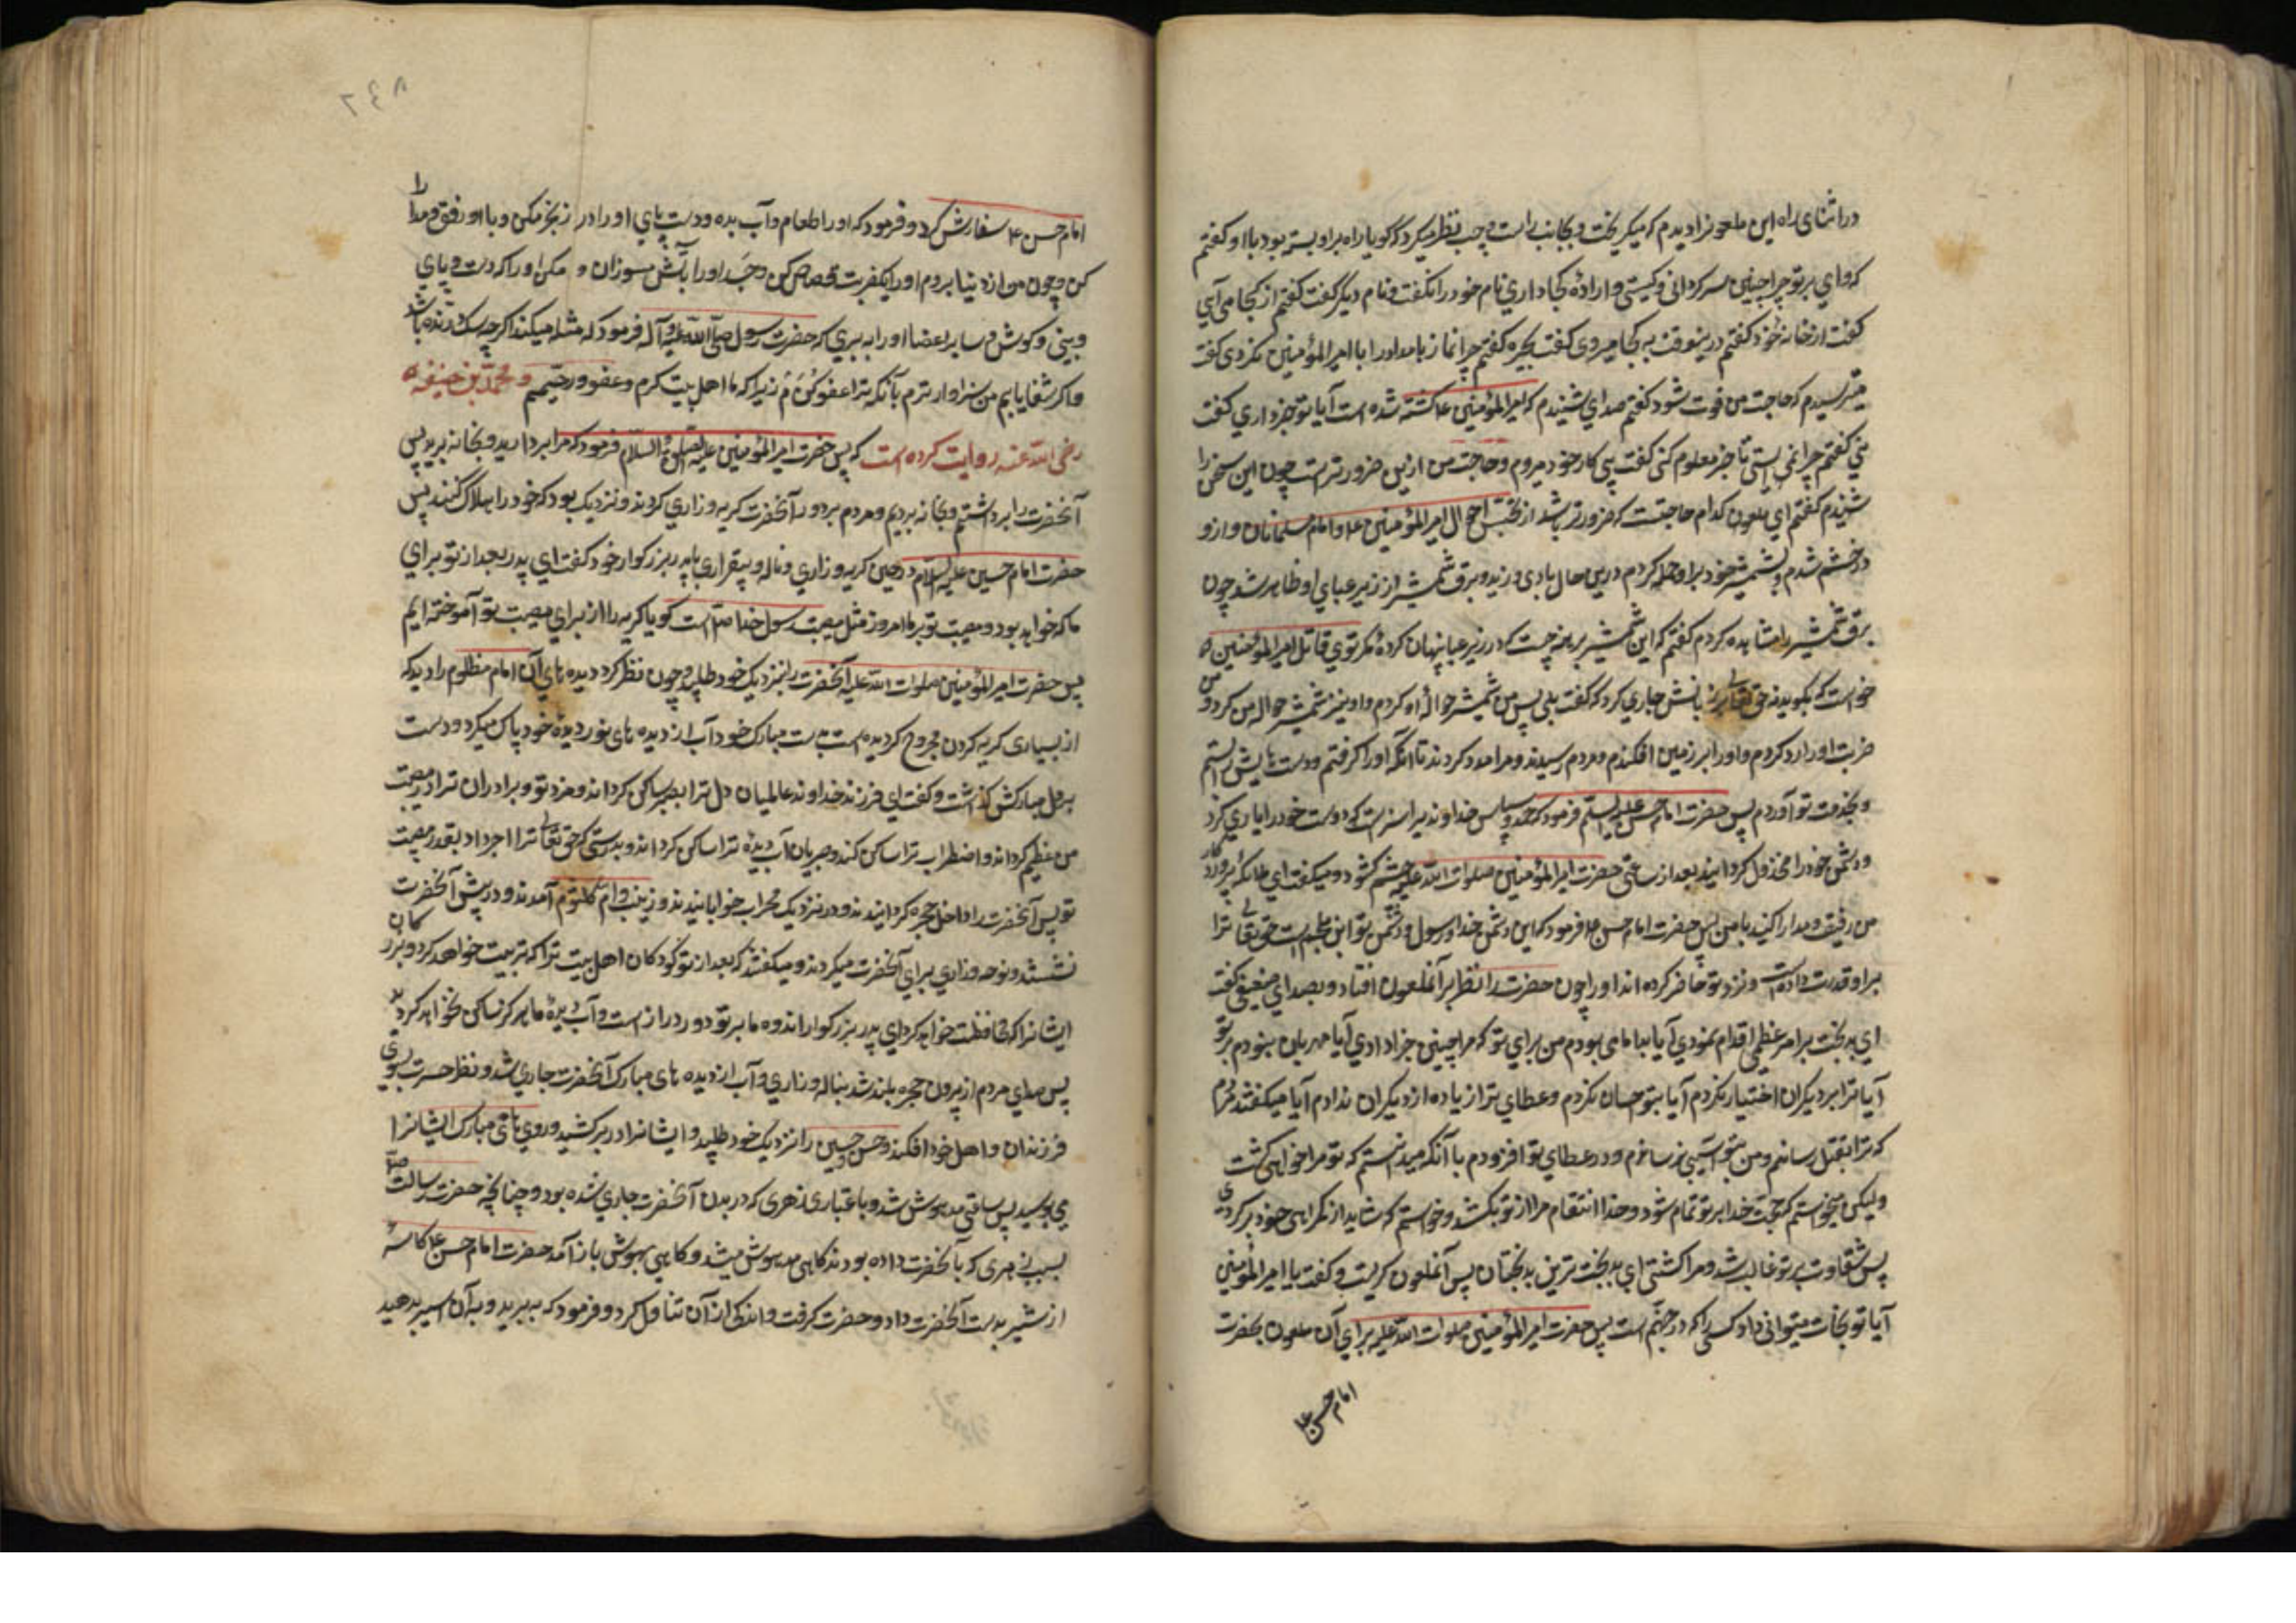 در اثنای راه این ملعونرا دیدم که میکریخت و بجانب راست و چپ نظر میکرد گویا راه براو بسته بود با او کفتم
که وای بر تو چرا چنین سرکردانی و کیستی و ارادهٔ کجا داری نام خود را نکفت و نام دیگر گفت کفتم از کجا می آیی
کفت از خانه خود کفتم درینوقت به کجا میروی کفت بحیره کفتم چرا نماز بامداد را با امیرالمؤمنین نکردی کفت
میترسیدم که حاجت من فوت شود کفتم صدای شنیدم که امیرالمؤمنین ع کشته شده است آیا تو خبر داری کفت
نی کفتم چرا نمی ایستی تا خبر معلوم کنی کفت پی کار خود میروم و حاجت من ازین ضرورتر است چون این سخن را
شنیدم کفتم ای ملعون کدام حاجتست که ضرورتر باشد از تجسس احوال امیرالمؤمنین ع و امام مسلمانان و ازو
در خشم شدم و بشمشیر خود براو حمله کردم درین حال بادی وزید و برق شمشیر از زیر عبای او ظاهر شد چون
برق شمشیر را مشاهده کردم کفتم که این شمشیر برهنه چیست که در زیر عبا پنهان کردهٔ مکر توی قاتل امیرالمؤمنین
خواست که بکوید نه حق تعالی بر زبانش جاری کرد که کفت بلی پس من شمشیر حوالهٔ او کردم و او نیز شمشیر حواله من کرد و من
ضربت او را رد کردم و او را بر زمین افکندم و مردم رسیدند و مرا مدد کردند تا آنکه او را کرفتم و دست هایش بستم
و بخدمت تو آوردم پس حضرت امام حسن علیه السلم فرمود که حمد و سپاس خداوندیرا سزاست که دوست خود را یاری کرد
و دشمن خود را مخذول کردانید بعد از ساعتی حضرت امیرالمؤمنین صلوات الله علیه چشم کشود و میکفت ای ملائکه پروردکار
من رفیق و مدارا کنید با من پس حضرت امام حسن ع فرمود که این دشمن خدا و رسول و دشمن تو ابن ملجم است حق تعالی ترا
براو قدرت داده است و نزد تو حاضر کرده اند او را چون حضرت را نظر بر آنملعون افتاد و بصدای ضعیفی کفت
ای بدبخت بر امر عظیمی اقدام نمودی آیا بد امامی بودم من برای تو که مرا چنین جزا دادی آیا مهربان نبودم بر تو
آیا ترا بر دیکران اختیار نکردم آیا بتو احسان نکردم و عطای ترا زیاده از دیکران ندادم آیا میکفتند مردم
که ترا بقتل رسانم و من بتو آسیبی نرساندم و در عطای تو افزودم با آنکه میدانستم که تو مرا خواهی کشت
ولیکن میخواستم که حجت خدا بر تو تمام شود و خدا انتقام مرا از تو بکشد و خواستم که شاید از کمراهی خود برکردی
پس شقاوت بر تو غالب شد و مرا کشتی ای بدبخت ترین بدبختان پس آنملعون کریست و کفت یا امیرالمؤمنین
آیا تو نجات میتوانی داد کسی را که در جهنم است پس حضرت امیرالمؤمنین صلوات الله علیه برای آن ملعون بحضرت
امام حسن ع
۲۴۸
امام حسن ع سفارش کرد و فرمود که او را طعام و آب بده و دست پای او را در زنجیر مکن و با او رفق و مدارا
کن و چون من از دنیا بروم او را بیکضربت قصاص کن و جسد او را بآتش مسوزان و مکن او را که دست و پای
و بینی و کوش و سایر اعضا او را به بری که حضرت رسول صلی الله علیه و آله فرمود که مثله میکنید اکرچه سک درنده باشد
و اکر شفا یابم من سزاوارترم بآنکه ترا عفو کنم زیرا که ما اهل بیت کرم و عفو و رحمتیم و محمد بن حنفیه
رضی الله عنه روایت کرده است که پس حضرت امیرالمؤمنین علیه الصلوة و السلام فرمود که مرا بردارید و بخانه برید پس
آنحضرت را برداشتیم و بخانه بردیم و مردم بر دور آنحضرت کریه و زاری کردند و نزدیک بود که خود را هلاک کنند پس
حضرت امام حسین علیه السلام در حین کریه و زاری و ناله و بیقراری با پدر بزرکوار خود کفت ای پدر بعد از تو برای
ما که خواهد بود و مصیبت تو بر ما امروز مثل مصیبت رسول خدا ص است کویا کریه را از برای مصیبت تو آموخته ایم
پس حضرت امیرالمؤمنین صلوات الله علیه آنحضرت را بنزدیک خود طلبید چون نظر کرد دیده های آن امام مظلوم را دید که
از بسیاری کریه کردن مجروح کردیده است بدست مبارک خود آب از دیده های نور دیده خود پاک میکرد و دست
بر دل مبارکش کذاشت و کفت ای فرزند خداوند عالمیان دل ترا بصبر ساکن کرداند و مزد تو و برادران ترا در مصیبت
من عظیم کرداند و اضطراب ترا ساکن کند و جریان آب دیدهٔ ترا ساکن کرداند و بدرستی که حق تعالی ترا اجر داد بقدر مصیبت
تو پس آنحضرت را داخل حجره کردانیدند و در نزدیک محراب خوابانیدند و زینب و ام کلثوم آمدند و در پیش آنحضرت
نشستند و نوحه و زاری برای آنحضرت میکردند و میکفتند که بعد از تو کودکان اهل بیت ترا که تربیت خواهد کرد و بزرکان
ایشانرا که محافظت خواهد کرد ای پدر بزرکوار اندوه ما بر تو دور دراز است و آب دیدهٔ ما هرکز ساکن نخواهد کردید
پس صدای مردم از بیرون حجره بلند شد بناله و زاری و آب از دیده های مبارک آنحضرت جاری شد و نظر حسرت بسوی
فرزندان و اهل خود افکند و حسن و حسین را نزدیک خود طلبید و ایشانرا در برکشید و روی های مبارک ایشانرا
می بوسید پس ساعتی مدهوش شد و باعتباری زهری که در بدن آنحضرت جاری شده بود و چنانچه حضرت رسالت ص
بسبب زهری که بآنحضرت داده بودند کاهی مدهوش میشد و کاهی بهوش باز آمد حضرت امام حسن ع کاسهٔ
از شیر بدست آنحضرت داد و حضرت کرفت و اندکی از آن تناول کرد و فرمود که ببرید و به آن اسیر بدهید